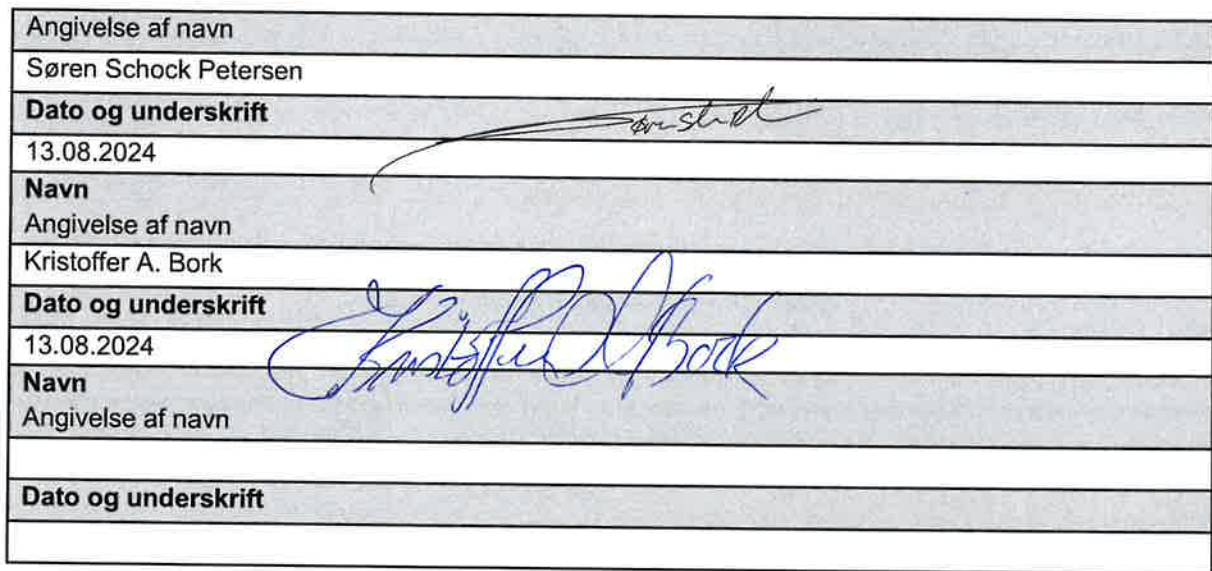 Angivelse af navn
Søren Schock Petersen
Dato og underskrift
13.08.2024
Navn
Angivelse af navn
Kristoffer A. Bork
Dato og underskrift
13.08.2024
Kristoffer A Bork
Navn
Angivelse af navn
Dato og underskrift